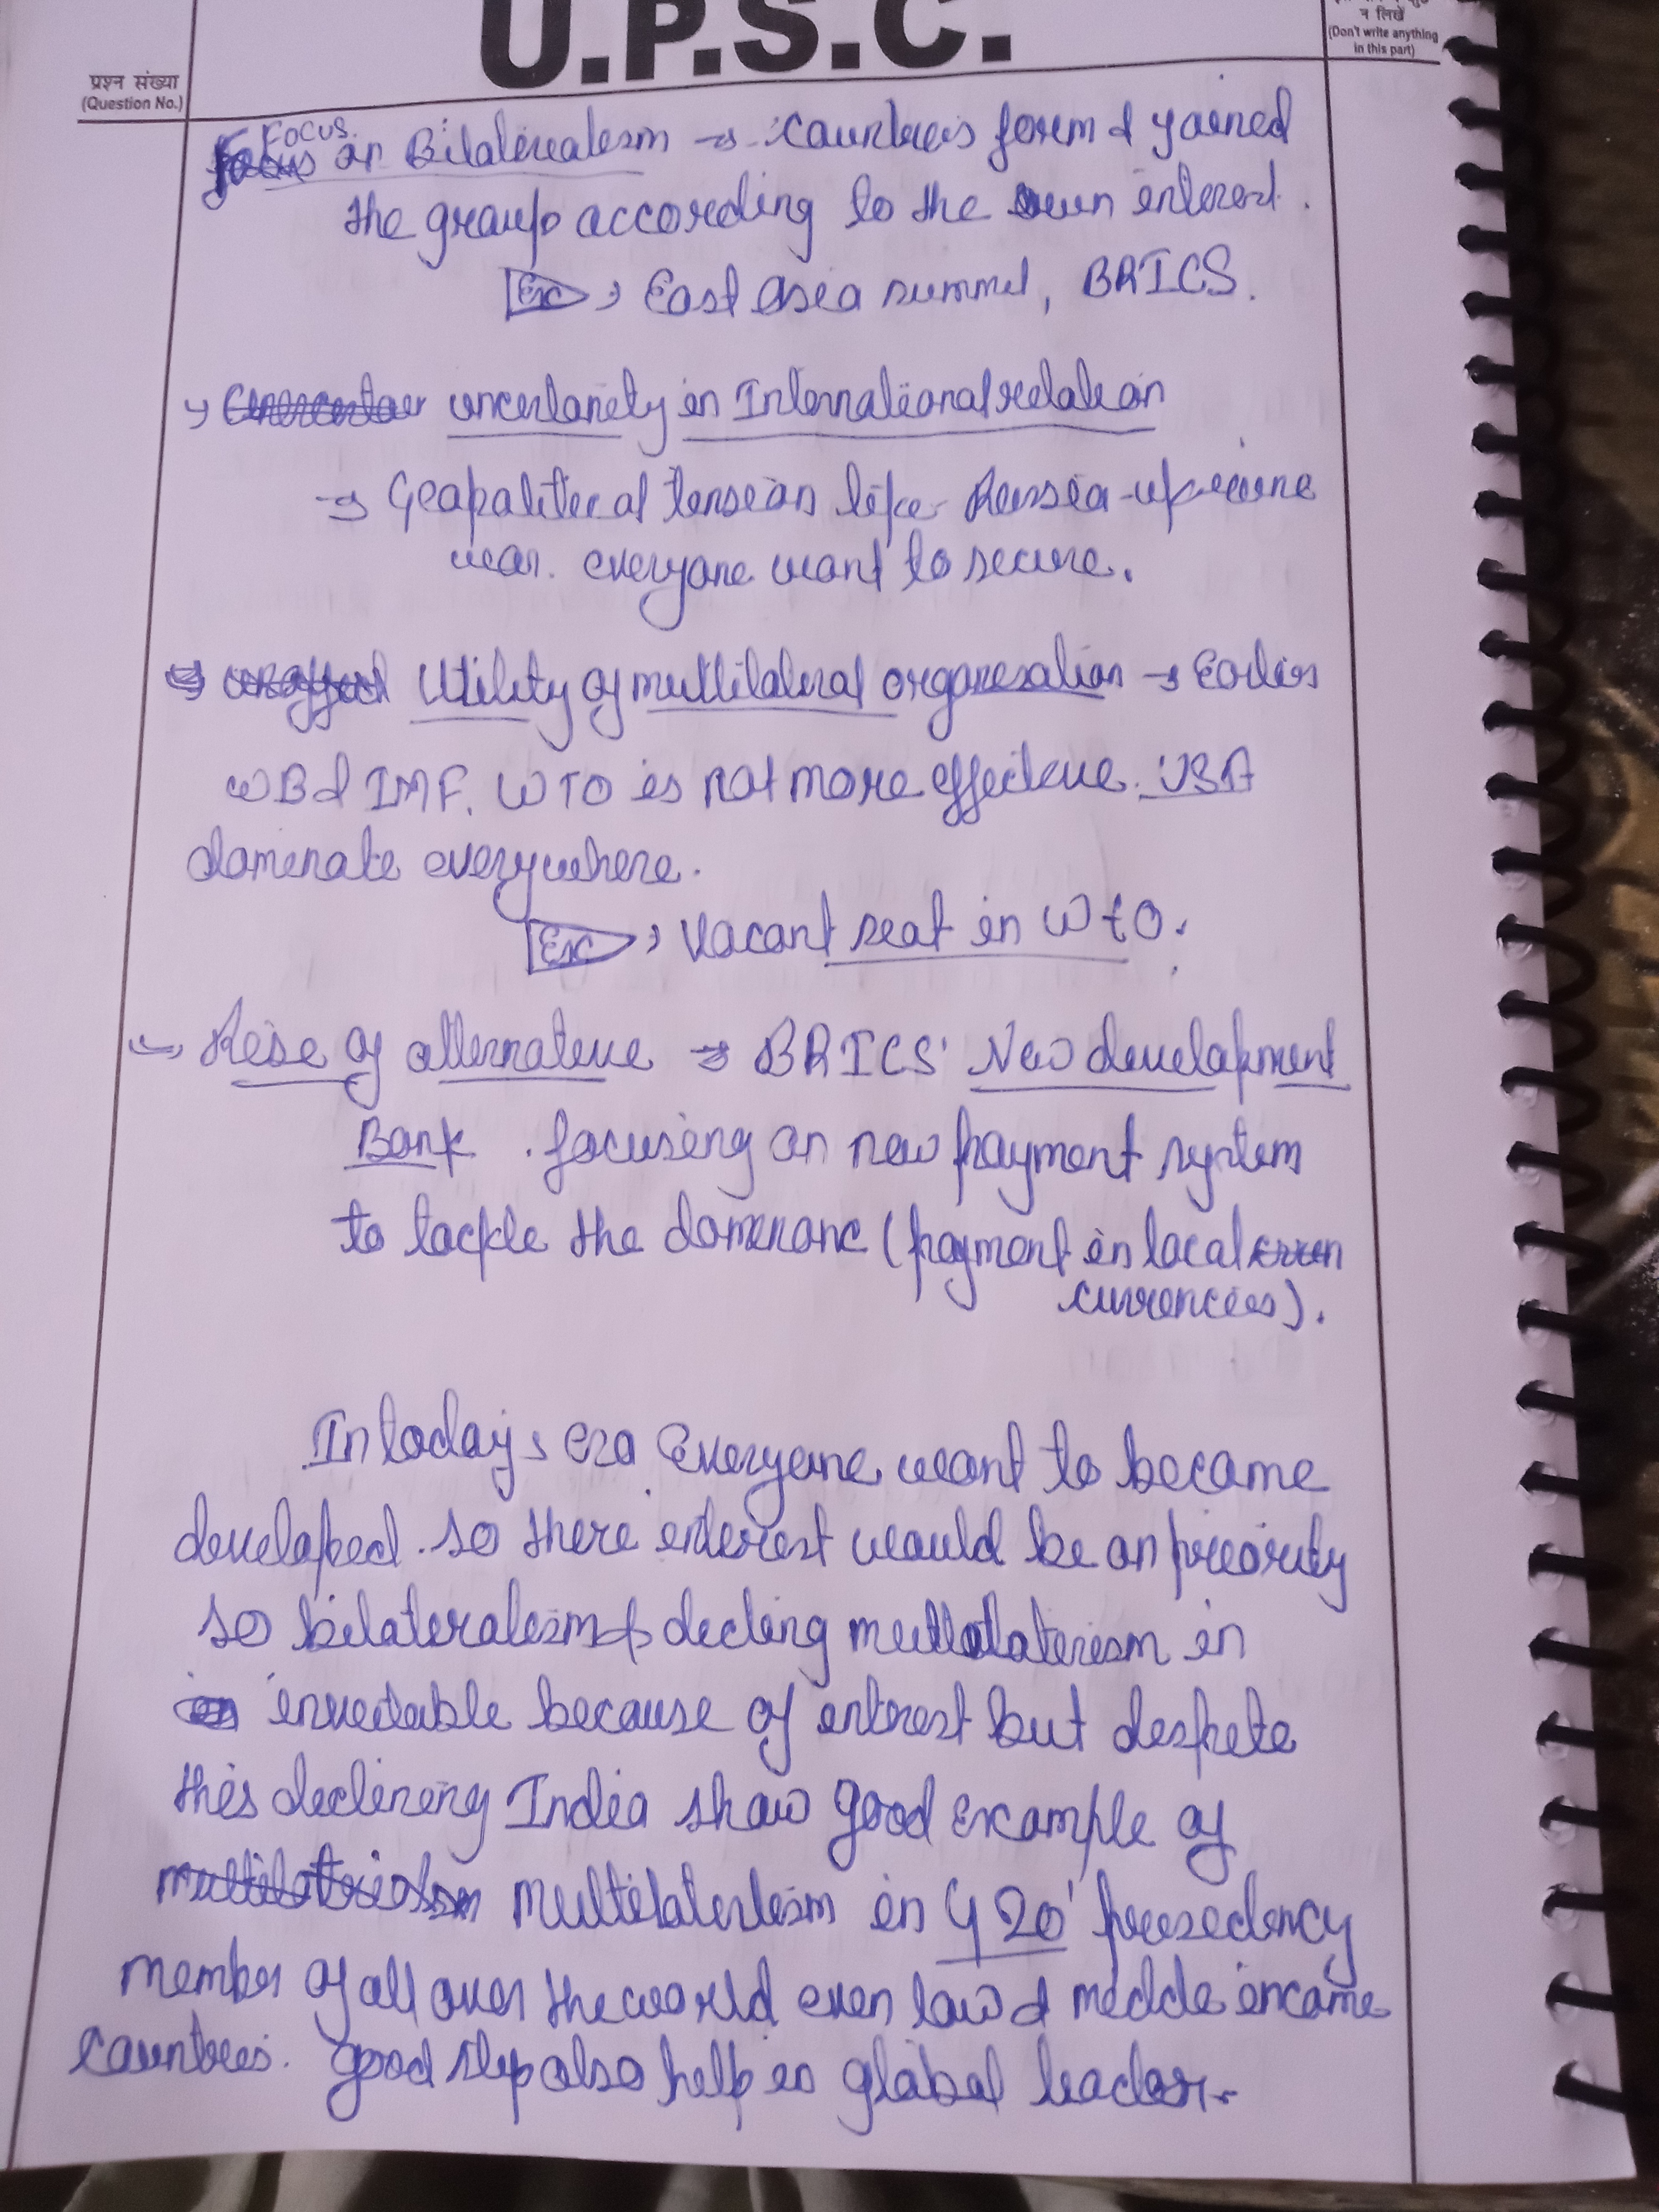 U.P.S.C.
न लिखें
(Don't write anything
in this part)
प्रश्न संख्या
(Question No.)
Focus
on Bilateralism → countries form & joined
the group according to the own interest.
Ex → East Asia summit, BRICS.
→ uncertanity in International relation
→ Geopolitical tension like Russia-ukraine
war. everyone want to secure.
→ Utility of multilateral organisation → Earlier
WB & IMF, WTO is not more effective. USA
dominate everywhere.
Ex → Vacant seat in WTO.
→ Rise of alternative → BRICS' New development
Bank. focusing on new payment system
to tackle the dominanc (payment in local
currencies).
In today's era everyone want to become
developed. so there interest would be on priority
so bilateralism & decling multilaterism in
inevitable because of interest but despite
this declining India show good example of
multilaterlism in G 20' presedency
member of all over the world even low & middle income
countries. good step also help in global leader.